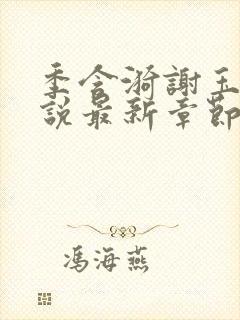 季含漪謝玉
說最新章節
馮海燕